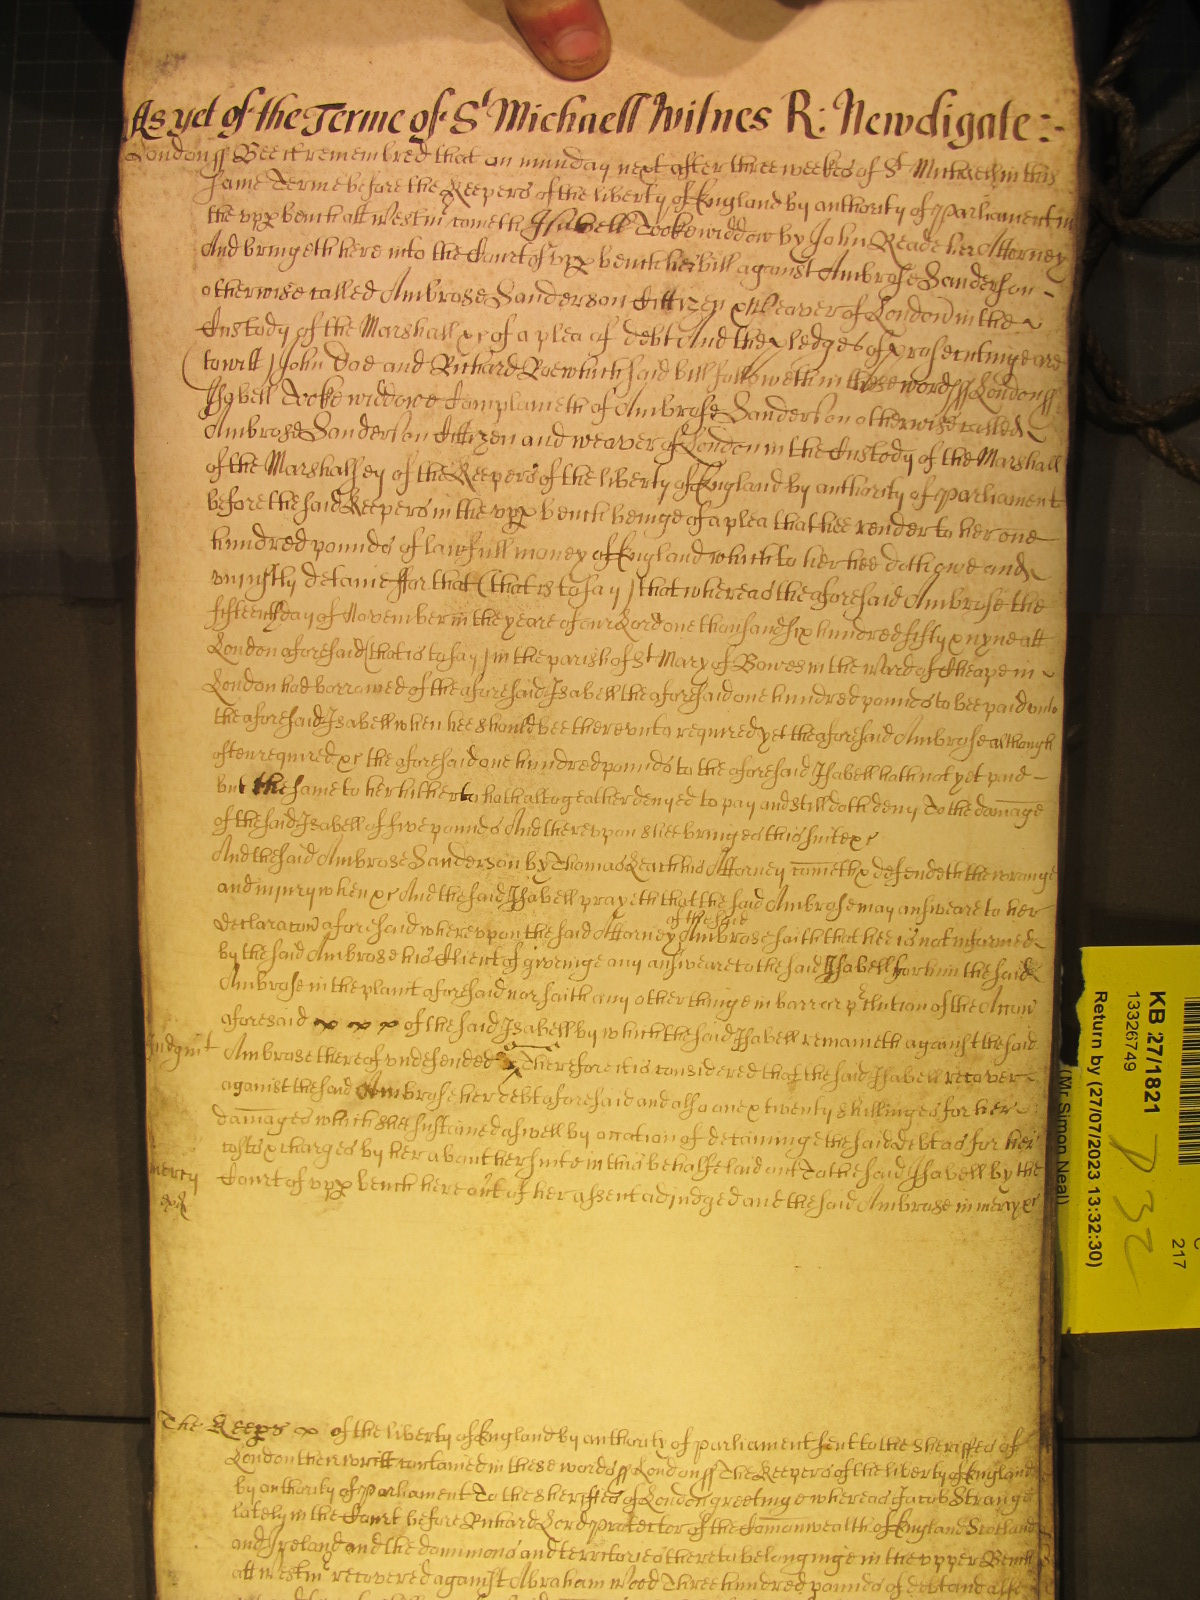 As yet of the Terme of St Michaell Witnes R: Newdigate :-
London ss Bee it remembred that on munday next after three weekes of St Michaell in this
same Terme before the Keepers of the liberty of England by authority of Parliament in
the upp bench att Westmr cometh Isabell Tooke widdow by John Reade her Attorney
And bringeth here into the Court of upp bench her bill against Ambrose Sanderson
otherwise called Ambrose Sanderson Cittizen & Weaver of London in the
Custody of the Marshall &c of a plea of debt And the pledges of prosecutinge are
(to witt) John Doe and Richard Roe which said bill followeth in these words ss London ss
Isabell Tooke widdowe Complaineth of Ambrose Sanderson otherwise called
Ambrose Sanderson Cittizen and weaver of London in the Custody of the Marshall
of the Marshallsey of the Keepers of the liberty of England by authority of Parliament
before the said Keepers in the upp bench beinge of a plea that hee render to her one
hundred pounds of lawfull money of England which to her hee doth owe and
uniustly detaine ffor that (that is to say) that whereas the aforesaid Ambrose the
fifteenth day of November in the yeare of our Lord one thousand six hundred fifty & nyne att
London aforesaid (that is to say) in the parish of St Mary of Bowes in the Ward of Cheape in
London had borrowed of the aforesaid Isabell the aforesaid one hundred pounds to bee paid unto
the aforesaid Isabell when hee should bee thereunto required yet the aforesaid Ambrose although
often required &c the aforesaid one hundred pounds to the aforesaid Isabell hath not yet paid
but the same to her hitherto hath altogeather denyed to pay and still doth deny To the damage
of the said Isabell of five pounds And thereupon shee bringes this suite &c
And the said Ambrose Sanderson by Thomas his Attorney cometh & defendeth the wronge
and iniury when &c And the said Isabell prayeth that the said Ambrose may answeare to her
of the said
declaracon aforesaid whereupon the said Attorney Ambrose saith that hee is not informed
by the said Ambrose his Client of giveinge any answeare to the said Isabell for him the said
Ambrose in the plaint aforesaid nor saith any other thinge in barr or pclution of the Accon
aforesaid of the said Isabell by which the said Isabell remaineth against the said
Judgmt
Ambrose thereof undefended Therefore it is considered that the said Isabell recover
against the said Ambrose her debt aforesaid and also one & twenty shillinges for her
damages which shee sustained aswell by occation of detaininge the said debt as for her
costs & charges by her about her suite in this behalfe laid out To the said Isabell by the
mercy
Court of upp bench here out of her assent adiudged and the said Ambrose in mercy &c
The Keeps of the liberty of England by authority of parliament sent to the sheriffes of
London their writt contained in these words ss London ss The Keepers of the liberty of England
by authority of Parliament To the sheriffes of London greetinge whereas Jacob Strange
lately in the Court before Richard Lord Protector of the Comonwealth of England Scotland
and Ireland and the dominions and territories thereto belonginge in the upper Bench
att Westmr recovered against Abraham Wood Three hundred pounds of debt and alsoe
KB 27/1821
13326749
Return by (27/07/2023 13:32:30)
(Mr Simon Neal)
217
D 32